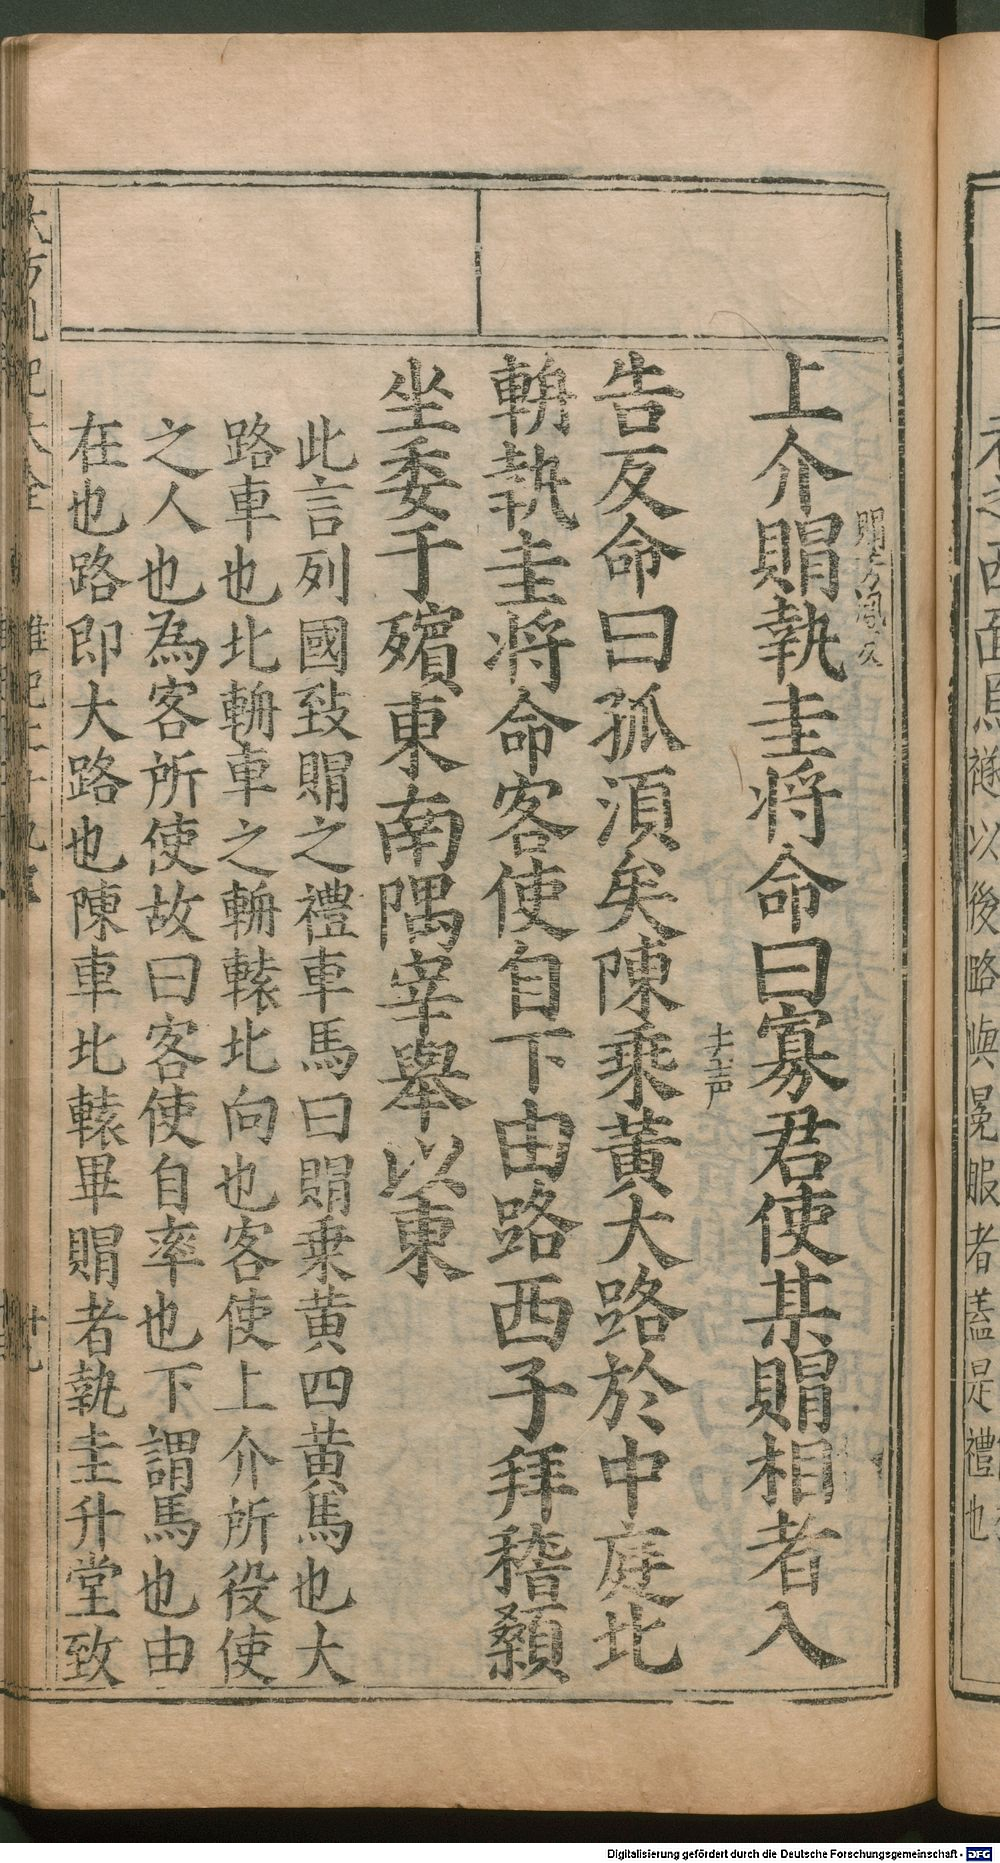 未之西面烏襚以後路與冕服者蓋是禮也
上介賵執圭將命曰寡君使某賵相者入
賵芳鳳反
告反命曰孤湏矣陳乘黃大路於中庭北
去声
輈執圭將命客使自下由路西子拜稽顙
坐委于殯東南隅宰舉以東
此言列國致賵之禮車馬曰賵乗黄四黄馬也大
路車也北輈車之輈轅北向也客使上介所役使
之人也為客所使故曰客使自率也下謂馬也由
在也路即大路也陳車北轅畢賵者執圭升堂致
大方礼記大全 雜記二十九卷 廿九
Digitalisierung gefördert durch die Deutsche Forschungsgemeinschaft - DFG